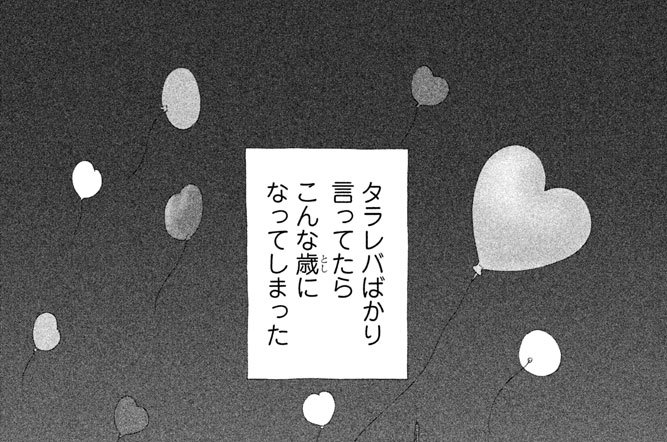 タラレバばかり
言ってたら
こんな歳に
なってしまった
とし